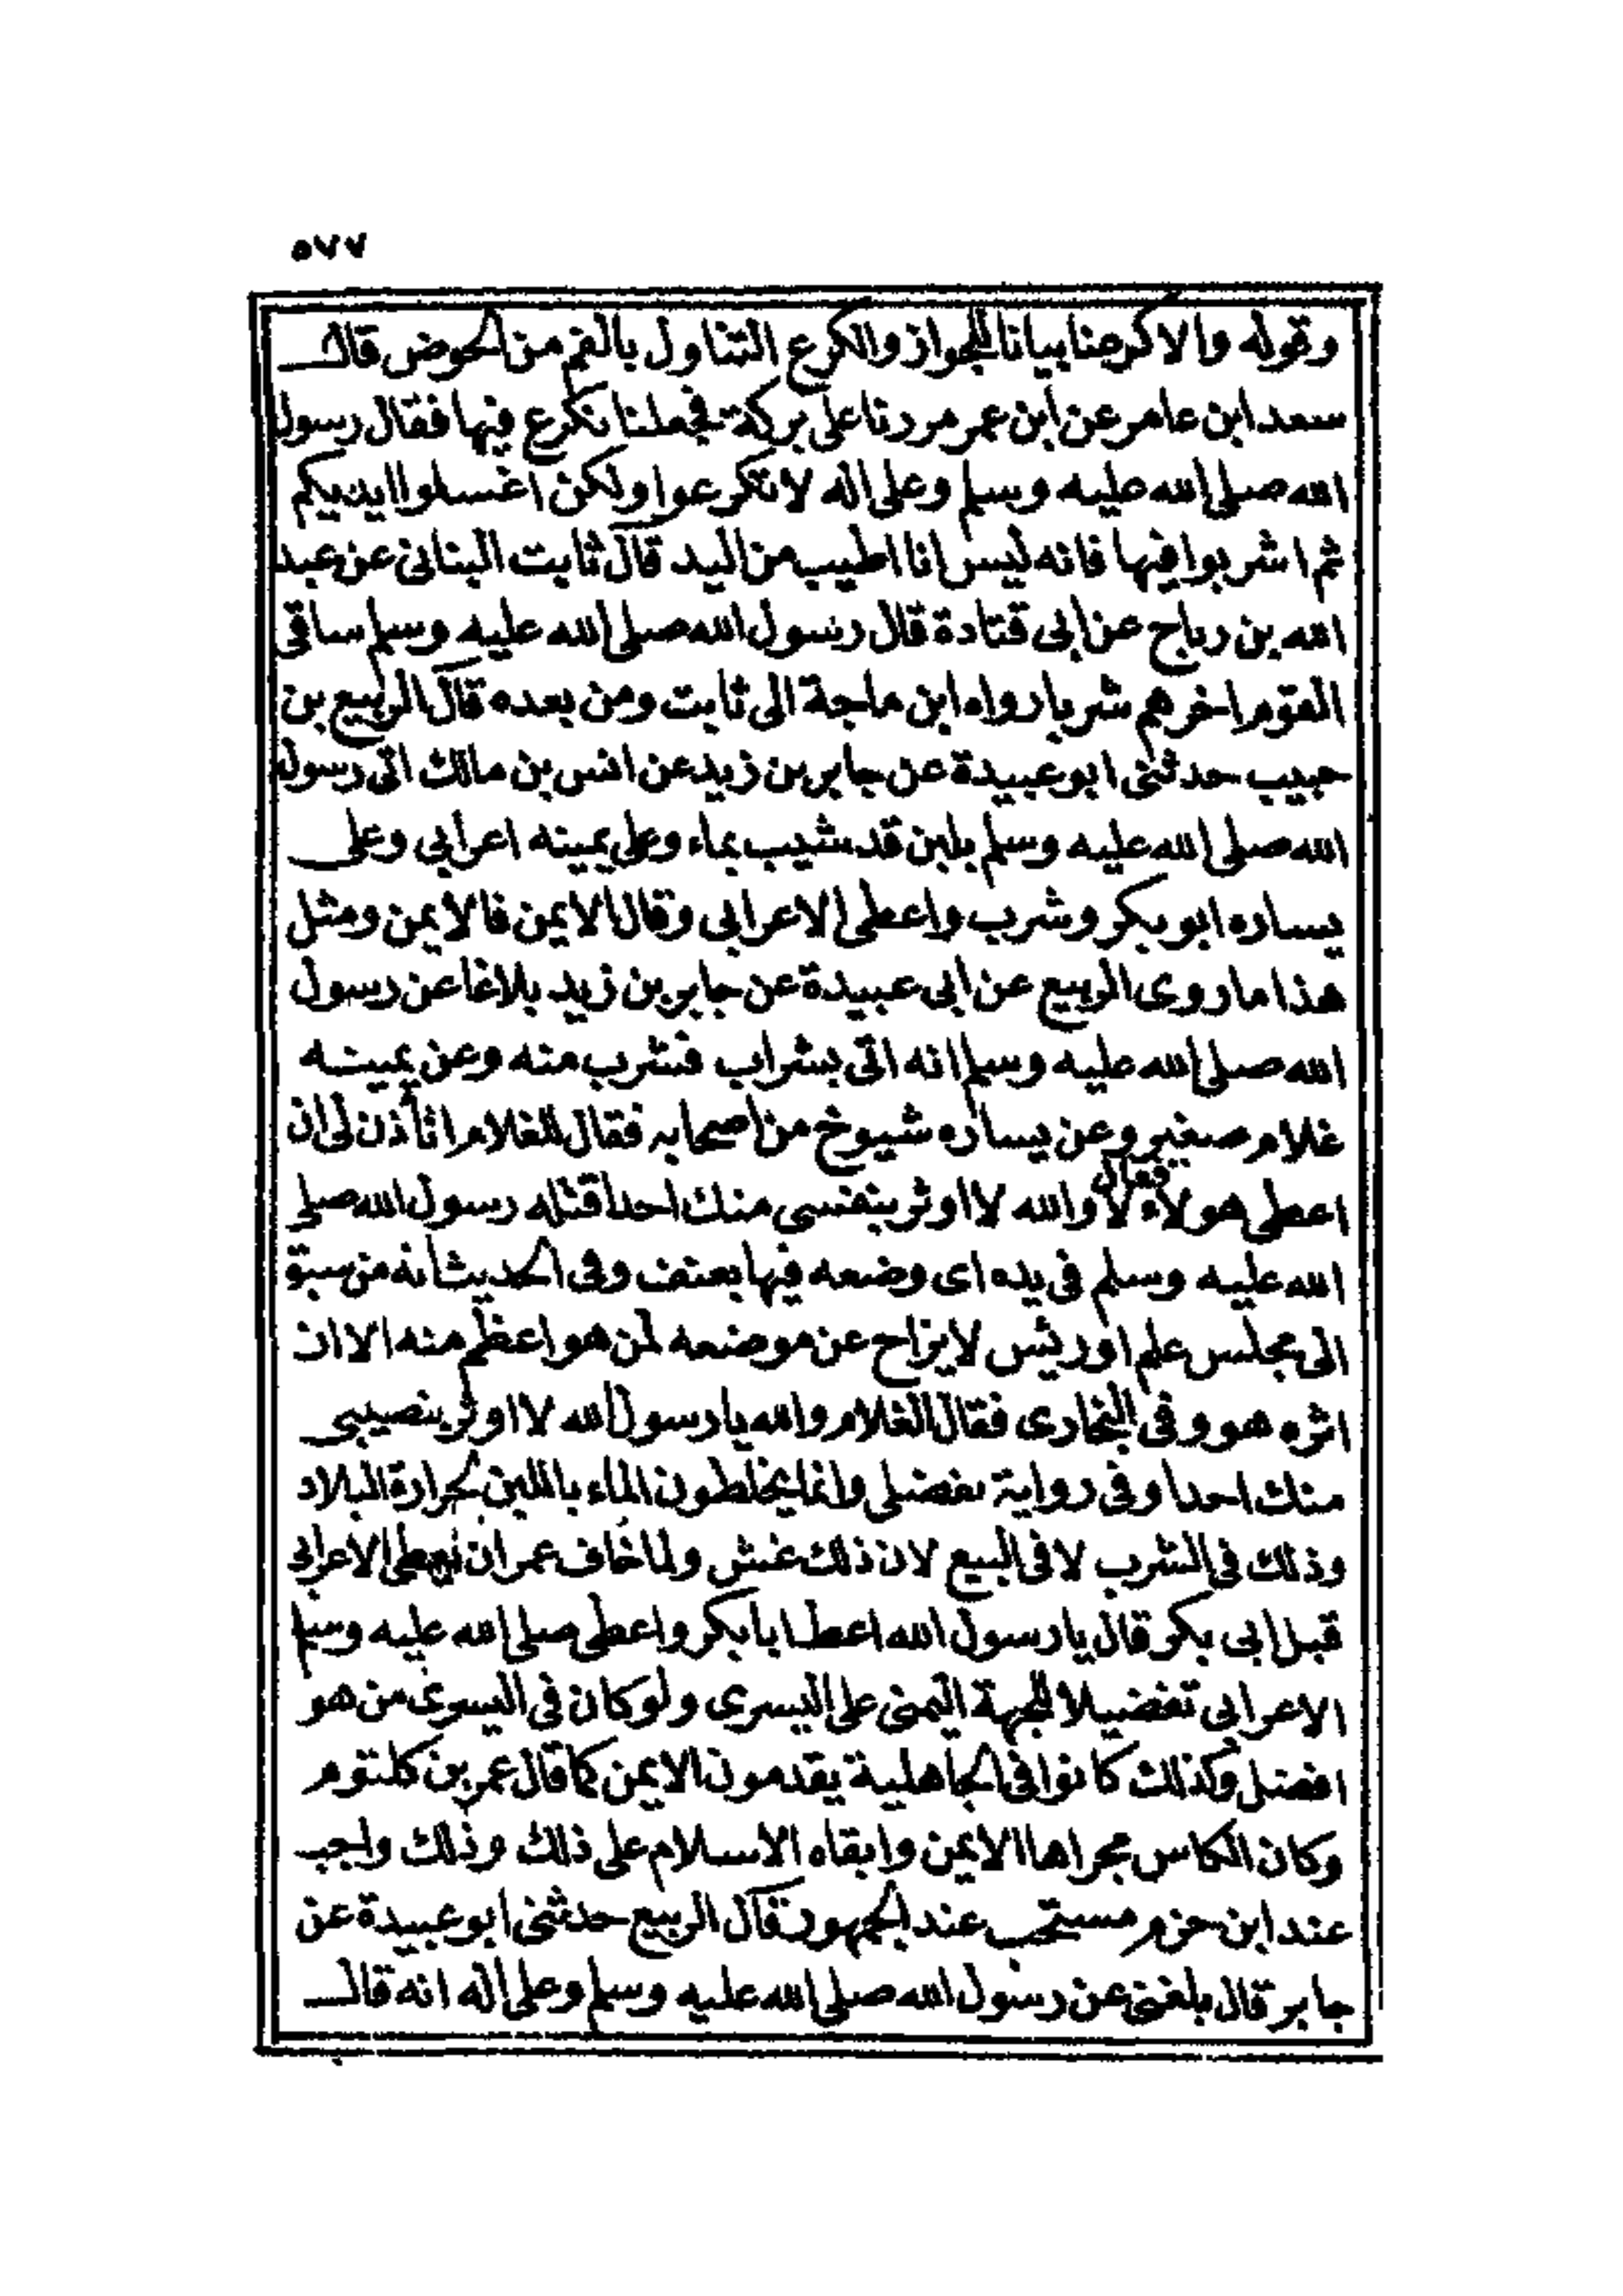 ٥٧٧
وقوله والاكرعنا بيانا للجواز والكرع التناول بالفم من الحوض قال
سعد ابن عامر عن ابن عمر مررنا على بركة فجعلنا نكرع فيها فقال رسول
الله صلى الله عليه وسلم وعلى اله لا تكرعوا ولكن اغسلوا ايديكم
ثم اشربوا فيها فانه ليس انا اطيب من اليد قال ثابت البنانى عن عبد
الله بن رباح عن ابى قتادة قال رسول الله صلى الله عليه وسلم ساقى
القوم اخرهم شربا رواه ابن ماجة الى ثابت ومن بعده قال الربيع بن
حبيب حدثنى ابو عبيدة عن جابر بن زيد عن انس بن مالك اتى رسول
الله صلى الله عليه وسلم بلبن قد شيب بماء وعلى يمينه اعرابي وعلى
يساره ابو بكر وشرب واعطى الاعرابى وقال الايمن فالايمن ومثل
هذا ما روى الربيع عن ابى عبيدة عن جابر بن زيد بلاغا عن رسول
الله صلى الله عليه وسلم انه اتى بشراب فشرب منه وعن يمينه
غلام صغير وعن يساره شيوخ من اصحابه فقال للغلام اتأذن لى ان
اعطى هولاء فقال لا والله لا اوثر بنفسى منك احدا فتله رسول الله صلى
الله عليه وسلم فى يده اى وضعه فيها بعنف وفى الحديث انه من سبق
الى مجلس علم او رئيس لا يزاح عن موضعه لمن هو اعظم منه الا ان
اثره هو وفى البخارى فقال الغلام والله يا رسول الله لا اوثر بنصيبى
منك احدا وفى رواية بفضلى وانما يخلطون الماء باللبن لحرارة البلاد
وذلك فى الشرب لا فى البيع لان ذلك غش ولما خاف عمر ان يعطى الاعرابى
قبل ابى بكر قال يا رسول الله اعط ابا بكر واعطى صلى الله عليه وسلم
الاعرابى تفضيلا للجهة اليمنى على اليسرى ولو كان فى اليسرى من هو
افضل وكذلك كانوا فى الجاهلية يقدمون الايمن كما قال عمر بن كلتوم
وكان الكاس مجراها الايمن وابقاه الاسلام على ذلك وذلك واجب
عند ابن حزم مستحب عند الجمهور قال الربيع حدثنى ابو عبيدة عن
جابر قال بلغنى عن رسول الله صلى الله عليه وسلم وعلى اله انه قال